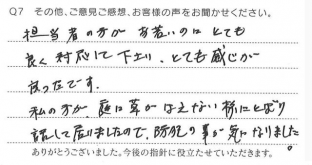 Q7 その他、ご意見ご感想、お客様の声をお聞かせください。
担当者の方が お若いのに とても
良く 対応して下さり、とても 感じが
良ったです。
私の方が、庭に草がはえない様にとばり
話して居りましたので、防犯の事が気になりました。
ありがとうございました。今後の指針に役立たせていただきます。